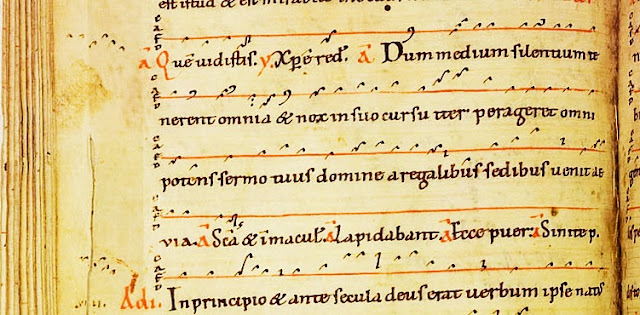 est istud & est mirabile
A Quē vidistis. V. Xpē red. A Dum medium silentium te
nerent omnia & nox in suo cursu iter perageret omni
potens sermo tuus domine a regalibus sedibus venit ae
via. A Scā & īmacul. A Lapidabant. A Ecce puer. A Sinite p.
Ad i. In principio & ante secula deus erat verbum ipse natus